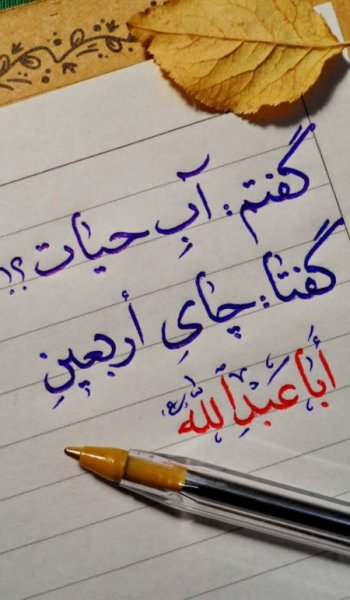 گفتم: آبِ حیات؟!
گفتا: چایِ أربعینِ
أباعَبدِالله